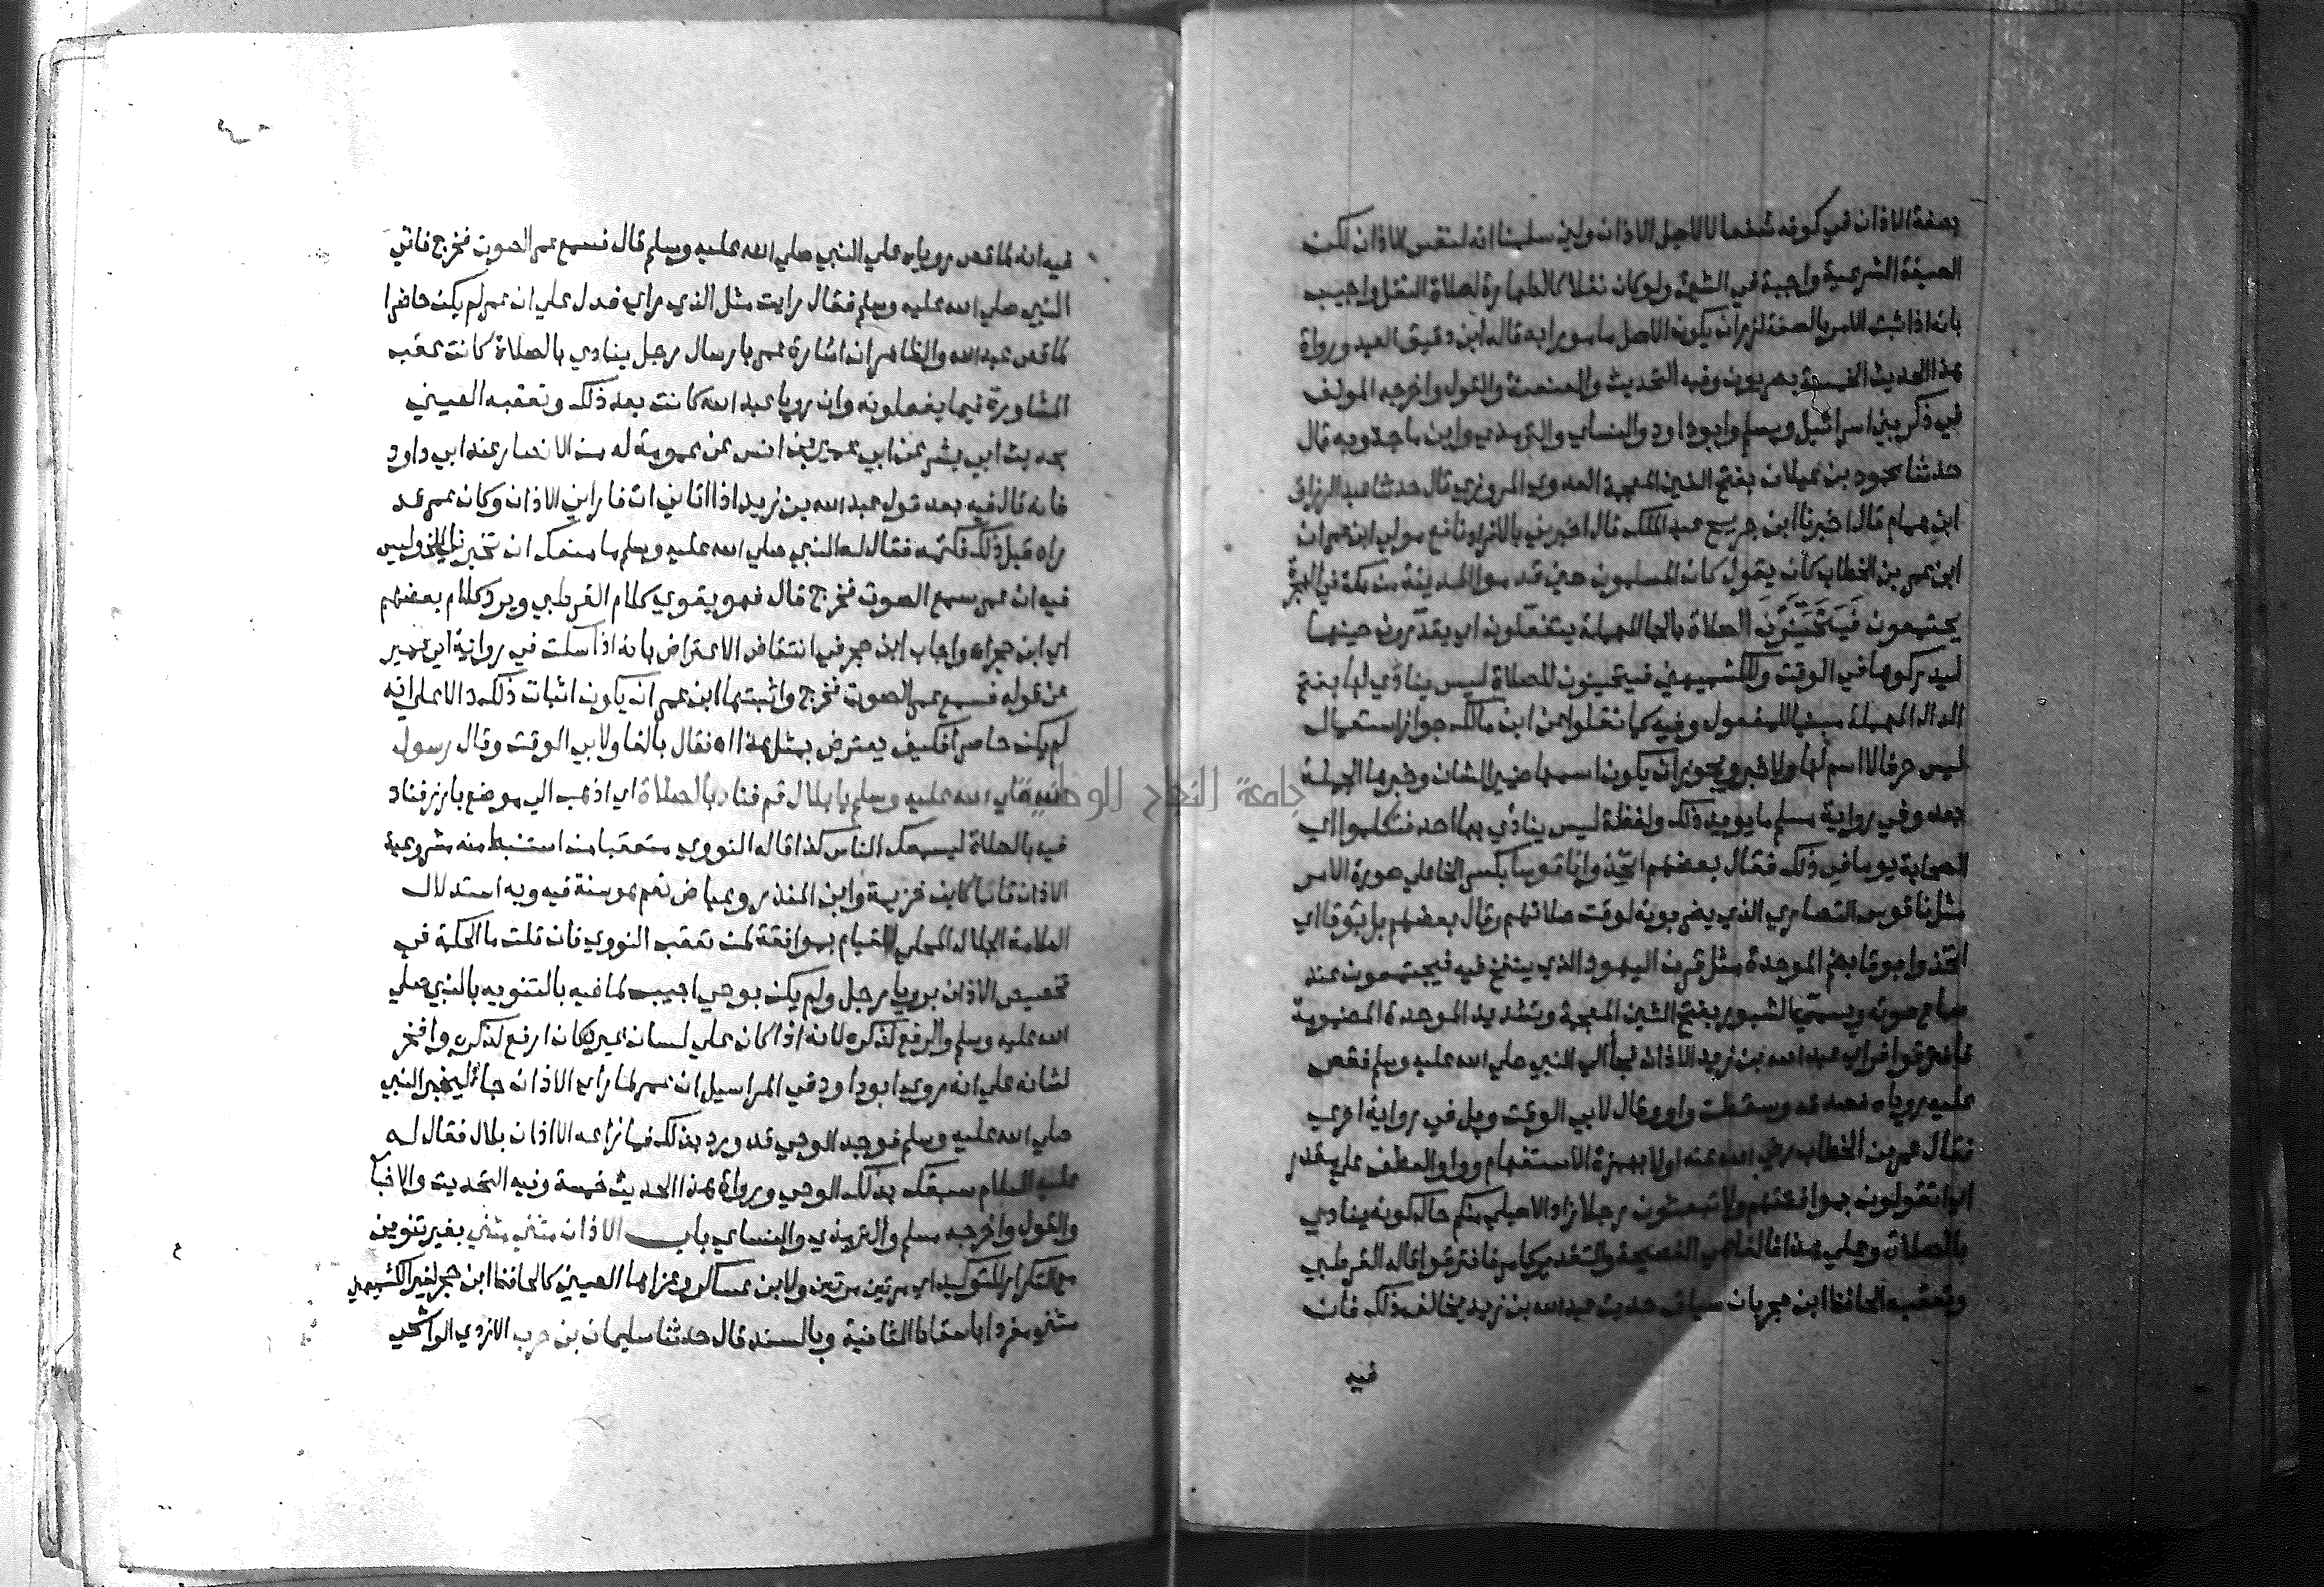 بصفة الاذان في كونه شفعا لا لاجل الاذان ولين سلمنا انه لنفس الاذان لكن
الصيغة الشرعية واجبة في الشي ولو كان نفلا كالطهارة لصلاة النفل واجيب
بانه اذا ثبت الامر بالصفة لزم ان يكون الاصل مامورا به قاله ابن دقيق العيد ورواة
هذا الحديث الخمسة بصريون وفيه التحديث والعنعنة والقول واخرجه المولف
في ذكر بني اسرائيل ومسلم وابو داود والنساي والترمذي وابن ماجة وبه قال
حدثنا محمود بن غيلان بفتح الغين المعجمة العدوي المروزي قال حدثنا عبد الرزاق
ابن همام قال اخبرنا ابن جريج عبد الملك قال اخبرني بالافراد نافع مولي ابن عمر ان
ابن عمر بن الخطاب كان يقول كان المسلمون حين قدموا المدينة من مكة في الهجرة
يجتمعون فَيَتَحَيَّنُونَ الصلاة بالحا المهملة يتفعلون اي يقدرون حينها
ليدركوها في الوقت وللكشميهني فيتحينون للصلاة ليس ينادي لها بفتح
الدال المهملة مبنيا للمفعول وفيه كما نقلوا عن ابن مالك جواز استعمال
ليس حرفا لا اسم لها ولا خبر ويجوز ان يكون اسمها ضمير الشان وخبرها الجملة
بعد وفي رواية مسلم ما يويد ذلك ولفظه ليس ينادي بها احد فتكلموا اي
الصحابة يوما في ذلك فقال بعضهم اتخذوا ناقوسا بكسر الخا علي صورة الامر
مثل ناقوس النصاري الذي يضربونه لوقت صلاتهم وقال بعضهم بل بوقا اي
اتخذوا بوقا بضم الموحدة مثل قرن اليهود الذي ينفخ فيه فيجتمعون عند
سماع صوته ويسمي الشبور بفتح الشين المعجمة وتشديد الموحدة المضمومة
فافترقوا فراي عبد الله بن زيد الاذان فجا الي النبي صلي الله عليه وسلم فقص
عليه روياه فصدقه وسقطت واو وقال لابي الوقت وبل في رواية اخري
فقال عمر بن الخطاب رضي الله عنه اولا بهمزة الاستفهام وواو العطف علي مقدر
اي اتقولون بموافقتهم ولا تبعثون رجلا زاد الاصيلي منكم حال كونه ينادي
بالصلاة وعلي هذا فالفا هي الفصيحة والتقدير كما مر فافترقوا قاله القرطبي
وتعقبه الحافظ ابن حجر بان سياق حديث عبد الله بن زيد يخالف ذلك فان
فيه
فيه انه لما قص روياه علي النبي صلي الله عليه وسلم قال فسمع عمر الصوت فخرج فاتي
النبي صلي الله عليه وسلم فقال رايت مثل الذي راي فدل علي ان عمر لم يكن حاضرا
لما قص عبد الله والظاهر ان اشارة عمر بارسال رجل ينادي بالصلاة كانت عقب
المشاورة فيما يفعلونه وان رويا عبد الله كانت بعد ذلك وتعقبه العيني
بحديث ابي بشر عن ابي عمير بن انس عن عمومة له من الانصار عند ابي داود
فانه قال فيه بعد قول عبد الله بن زيد اذ اتاني ات فاراني الاذان وكان عمر قد
راه قبل ذلك فكتمه فقال له النبي صلي الله عليه وسلم ما منعك ان تخبرنا الخ وليس
فيه ان عمر سمع الصوت فخرج قال فهو يقوي كلام القرطبي ويرد كلام بعضهم
اي ابن حجر اه واجاب ابن حجر في انتقاض الاعتراض بانه اذا سكت في رواية ابي عمير
عن قوله فسمع عمر الصوت فخرج واثبتها ابن عمر ان يكون اثبات ذلك دالا علي انه
لم يكن حاضرا فكيف يعترض بمثل هذا اه فقال بالفا ولابي الوقت وقال رسول
الله صلي الله عليه وسلم يا بلال قم فناد بالصلاة اي اذهب الي موضع بارز فناد
فيه بالصلاة ليسمعك الناس كذا قاله النووي متعقبا من استنبط منه مشروعية
الاذان قائما كابن خزيمة وابن المنذر وعياض نعم هو سنة فيه وبه استدلال
العلامة الجلال المحلي للقيام بموافقة لمن تعقب النووي فان قلت ما الحكمة في
تخصيص الاذان برويا رجل ولم يكن بوحي اجيب لما فيه بالتنويه بالنبي صلي
الله عليه وسلم والرفع لذكره لانه اذا كان علي لسان غيره كان ارفع لذكره وافخر
لشانه علي انه روي ابو داود في المراسيل ان عمر لما راي الاذان جا ليخبر النبي
صلي الله عليه وسلم فوجد الوحي قد ورد بذلك فما راعه الا اذان بلال فقال له
عليه السلام سبقك بذلك الوحي ورواة هذا الحديث خمسة وفيه التحديث والاخبا
والقول واخرجه مسلم والترمذي والنساي باب الاذان مثني مثني بغير تنوين
مع التكرار للتوكيد اي مرتين مرتين ولابن عساكر وعزاها العيني كالحافظ ابن حجر لغير الكشميهني
مثني مفردا باسقاط الثانية وبالسند قال حدثنا سليمان بن حرب الازدي الواشحي
جامعة النجاح الوطنية